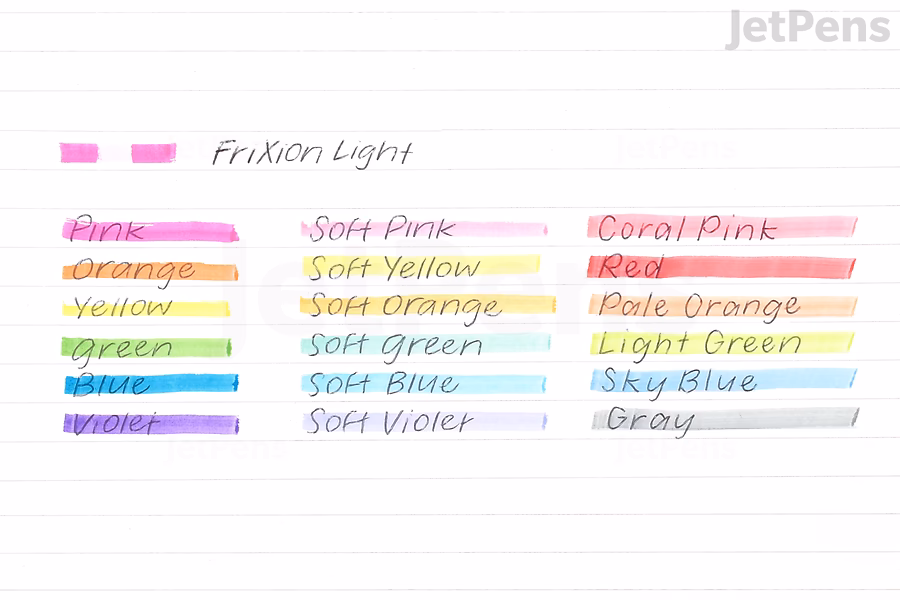 JetPens
FriXion Light
Pink Soft Pink Coral Pink
Orange Soft Yellow Red
Yellow Soft Orange Pale Orange
Green Soft Green Light Green
Blue Soft Blue Sky Blue
Violet Soft Violet Gray
JetPens
JetPens
JetPens
JetPens